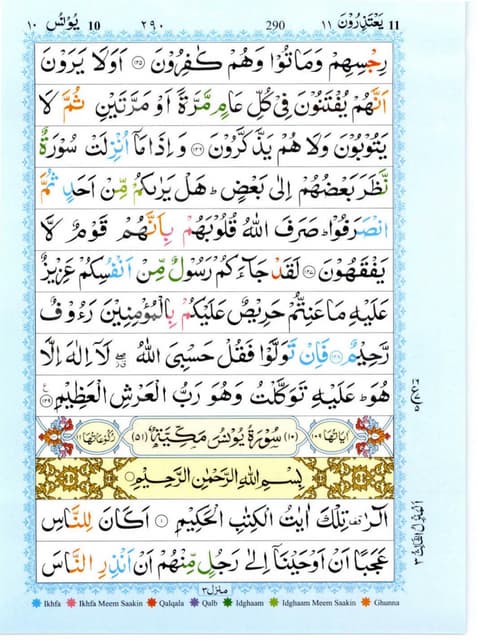 ۱۰ يُوْنُس 10 ۲۹۰ 290 يَعْتَذِرُوْنَ ۱۱ 11
رِجْسِهِمْ وَمَاتُوْا وَهُمْ كٰفِرُوْنَ ﴿۱۲۵﴾ اَوَلَا يَرَوْنَ
اَنَّهُمْ يُفْتَنُوْنَ فِيْ كُلِّ عَامٍ مَّرَّةً اَوْ مَرَّتَيْنِ ثُمَّ لَا
يَتُوْبُوْنَ وَلَا هُمْ يَذَّكَّرُوْنَ ﴿۱۲۶﴾ وَاِذَا مَاۤ اُنْزِلَتْ سُوْرَةٌ
نَّظَرَ بَعْضُهُمْ اِلٰى بَعْضٍ ؕ هَلْ يَرٰىكُمْ مِّنْ اَحَدٍ ثُمَّ
انْصَرَفُوْا ؕ صَرَفَ اللّٰهُ قُلُوْبَهُمْ بِاَنَّهُمْ قَوْمٌ لَّا
يَفْقَهُوْنَ ﴿۱۲۷﴾ لَقَدْ جَآءَكُمْ رَسُوْلٌ مِّنْ اَنْفُسِكُمْ عَزِيْزٌ
عَلَيْهِ مَا عَنِتُّمْ حَرِيْصٌ عَلَيْكُمْ بِالْمُؤْمِنِيْنَ رَءُوْفٌ
رَّحِيْمٌ ﴿۱۲۸﴾ فَاِنْ تَوَلَّوْا فَقُلْ حَسْبِيَ اللّٰهُ ۖ لَاۤ اِلٰهَ اِلَّا
هُوَ ؕ عَلَيْهِ تَوَكَّلْتُ وَهُوَ رَبُّ الْعَرْشِ الْعَظِيْمِ ﴿۱۲۹﴾
اٰيَاتُهَا ۱۰۹ (۱۰) سُوْرَةُ يُوْنُسَ مَكِّيَّةٌ (۵۱) رُكُوْعَاتُهَا ۱۱
بِسْمِ اللّٰهِ الرَّحْمٰنِ الرَّحِيْمِ
الٓرٰ ۫ تِلْكَ اٰيٰتُ الْكِتٰبِ الْحَكِيْمِ ﴿۱﴾ اَكَانَ لِلنَّاسِ
عَجَبًا اَنْ اَوْحَيْنَاۤ اِلٰى رَجُلٍ مِّنْهُمْ اَنْ اَنْذِرِ النَّاسَ
منزل ۳
Ikhfa Ikhfa Meem Saakin Qalqala Qalb Idghaam Idghaam Meem Saakin Ghunna